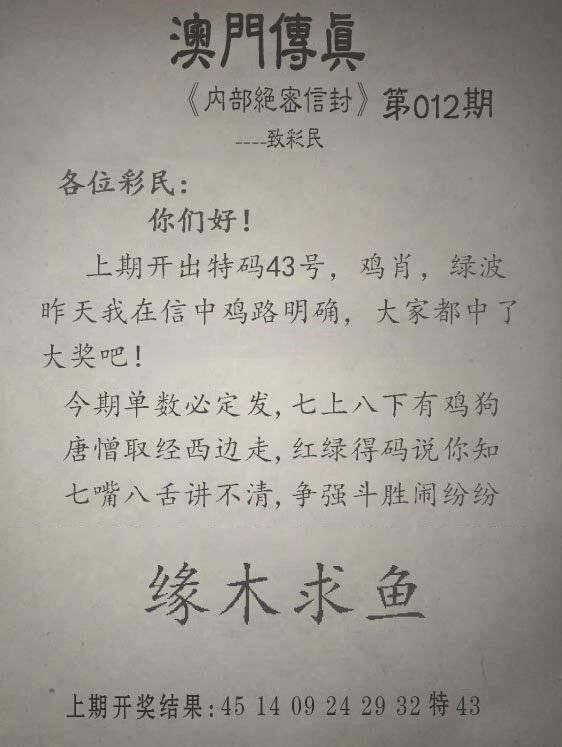 澳門傳眞
《内部絕密信封》第012期
----致彩民
各位彩民：
你们好！
上期开出特码43号，鸡肖，绿波
昨天我在信中鸡路明确，大家都中了
大奖吧！
今期单数必定发,七上八下有鸡狗
唐憎取经西边走,红绿得码说你知
七嘴八舌讲不清,争强斗胜闹纷纷
缘木求鱼
上期开奖结果:45 14 09 24 29 32 特 43